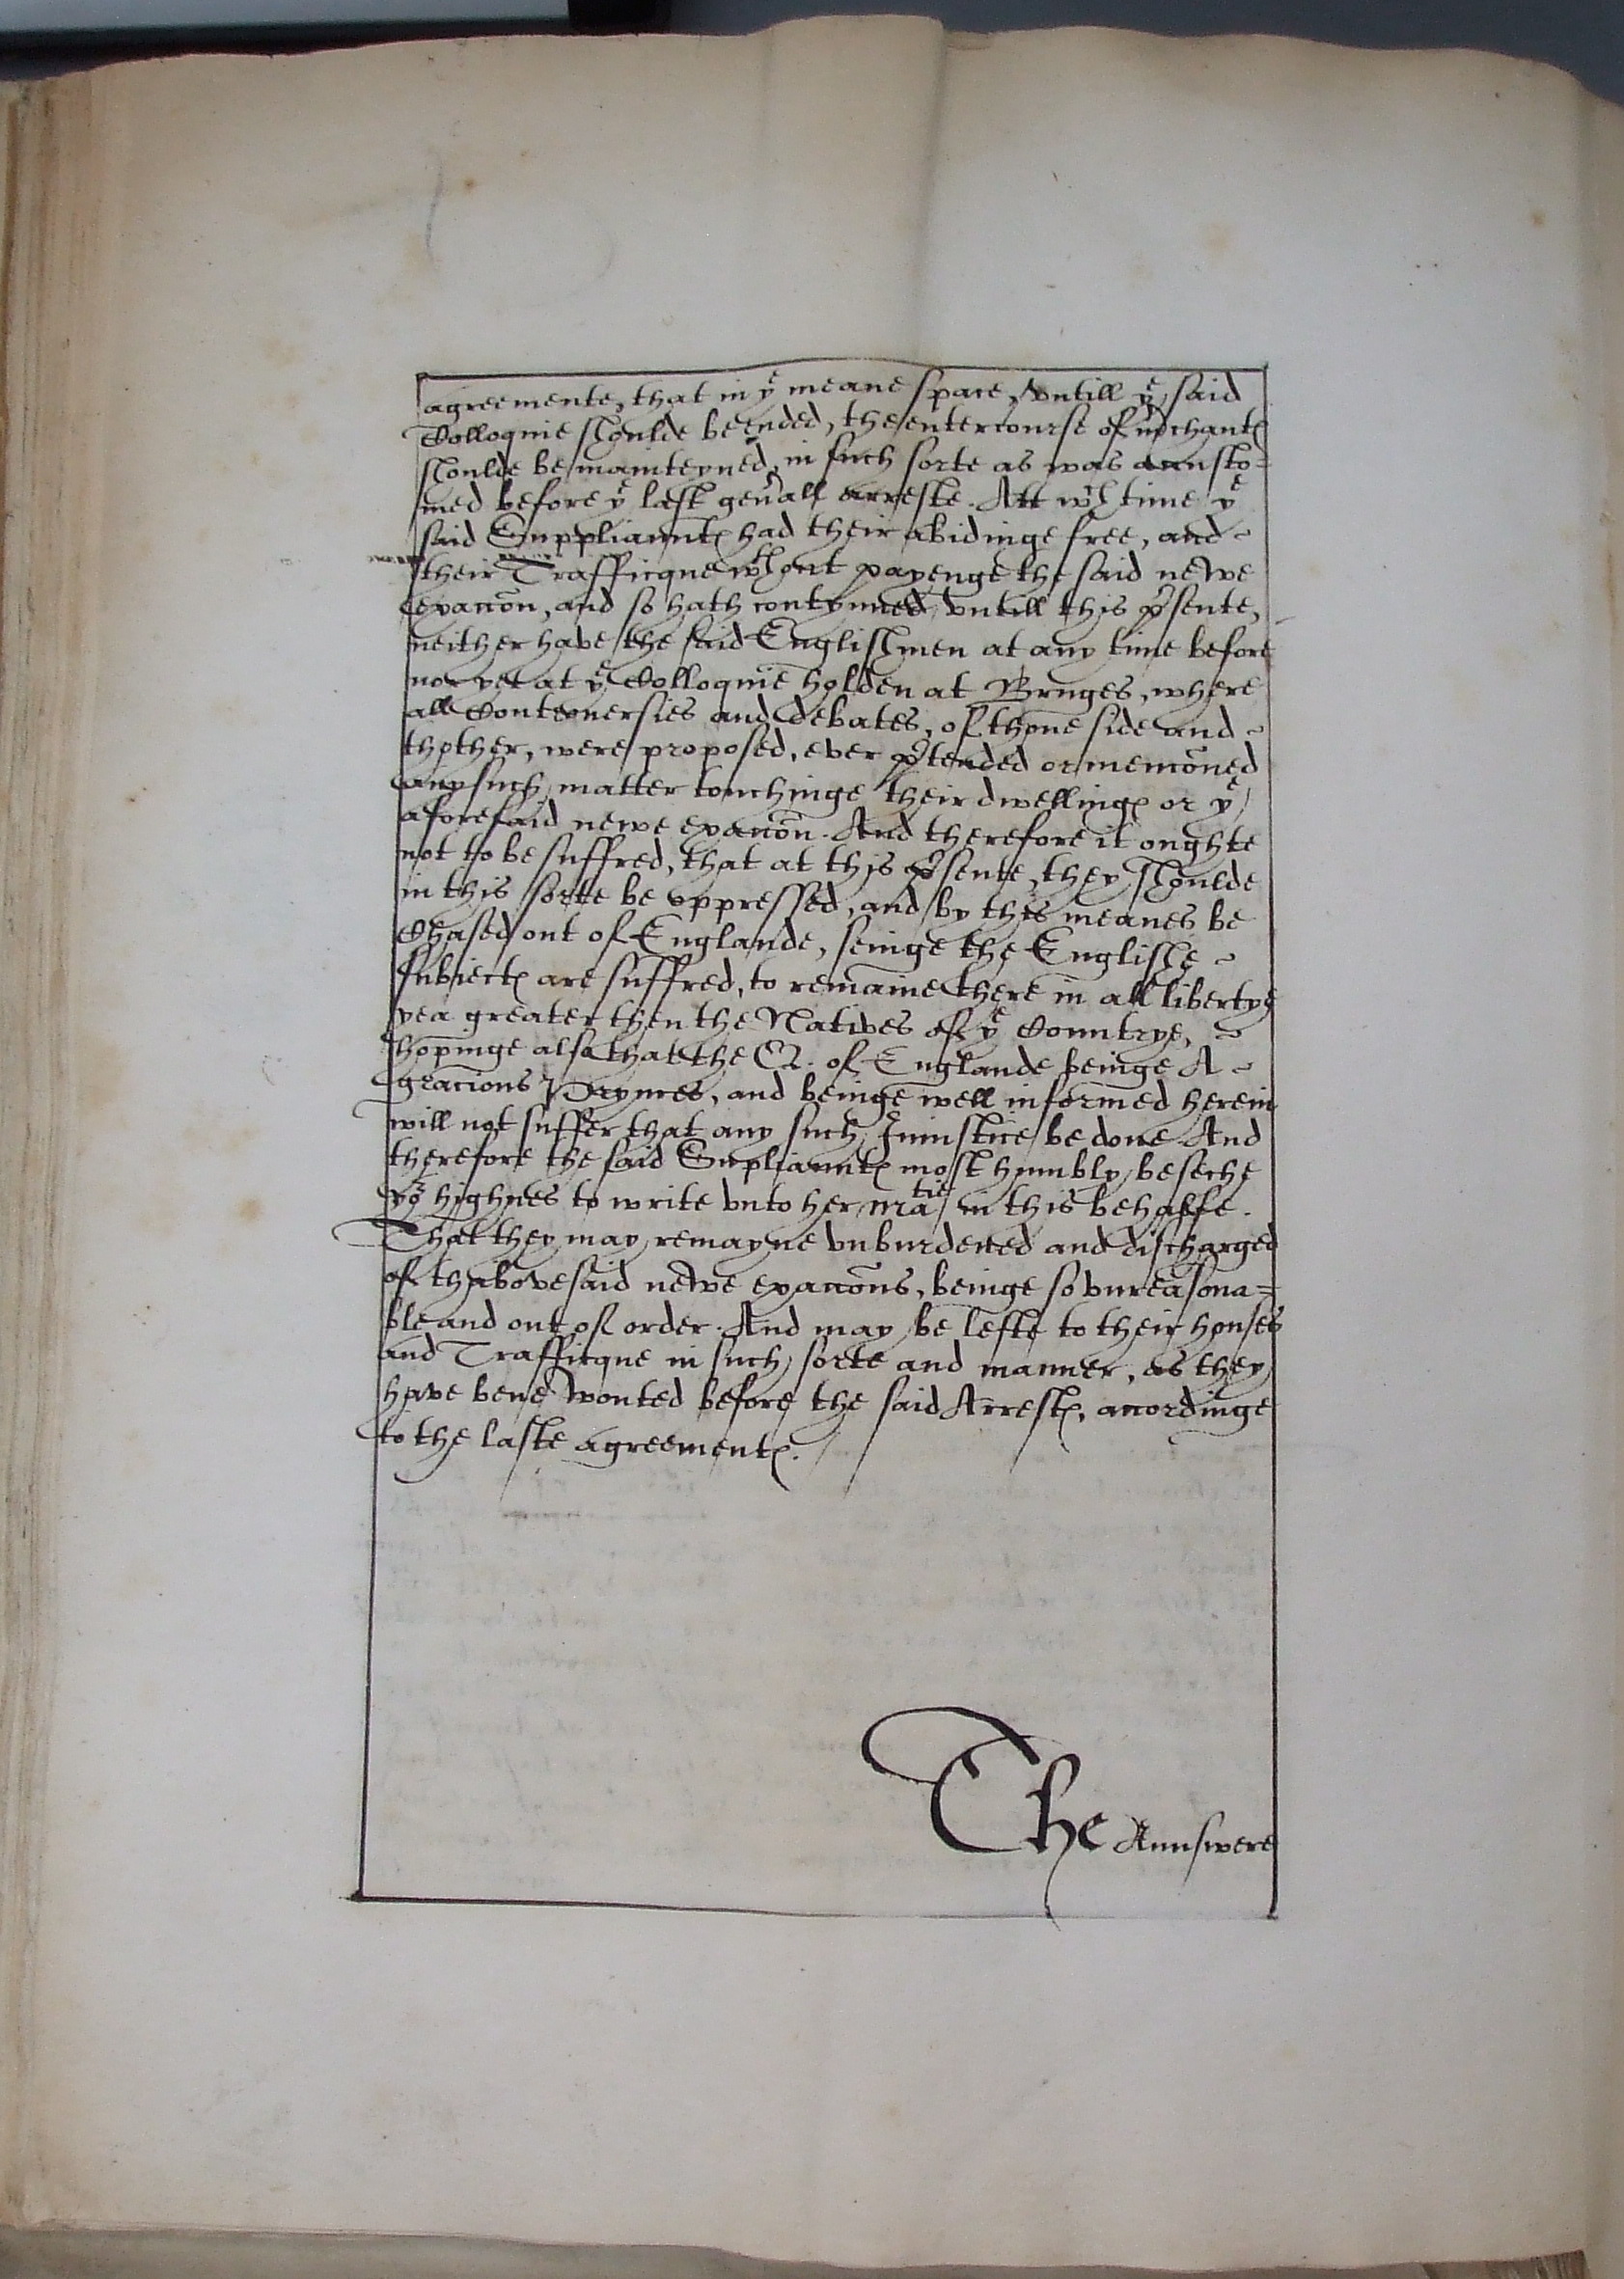 agreemente, that in yͤ meane space, vntill yͤ said
Colloquie shoulde be ended, the entercourse of m̃chantꝭ
shoulde be mainteyned, in such sorte as was accusto=
med before yͤ last gen̄all arreste. Att wᶜʰ time yͤ
said Suppliauntꝭ had their abidinge free, and ~
their Trafficque wᵗʰout payenge the said newe
exacc̃on, and so hath contynued, vntill this p̃sente,
neither have the said Englishmen at any time before
nor yet at yͤ Colloquie holden at Bruges, where
all Controuersies and debates, of thone side and ~
thother, were proposed, ever p̃tended or menc̃oned
any such matter touchinge their dwellingꝭ or yͤ
aforesaid newe exacc̃on. And therefore it oughte
not to be suffred, that at this p̃sente, they shoulde
in this sorte be oppressed, and by this meanes be
Chased out of Englande, seinge the Englishe ~
subiectꝭ are suffred, to remaine there in all libertye
yea greater then the Natives of yͤ Countrye, ~
hopinge also that the Q. of Englande beinge A ~
gracious Prynces, and beinge well informed herein
will not suffer that any such Iniustice be done. And
therefore the said Supliauntꝭ most humbly beseche
yoʳ highnes to write vnto her maᵗⁱᵉ in this behalfe.
That they may remayne vnburdened and discharged
of thabovesaid newe exacc̃ons, beinge so vnreasona=
ble and out of order. And may be lefte to their houses
and Trafficque in such sorte and manner, as they
have bene wonted before the said Arrestꝭ, accordinge
to the laste agreementꝭ.
The Aunswere